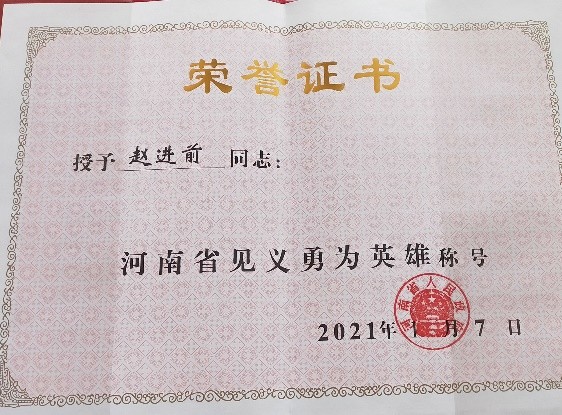 荣誉证书
授予 赵进前 同志：
河南省见义勇为英雄称号
河南省人民政府
2021年1月7日